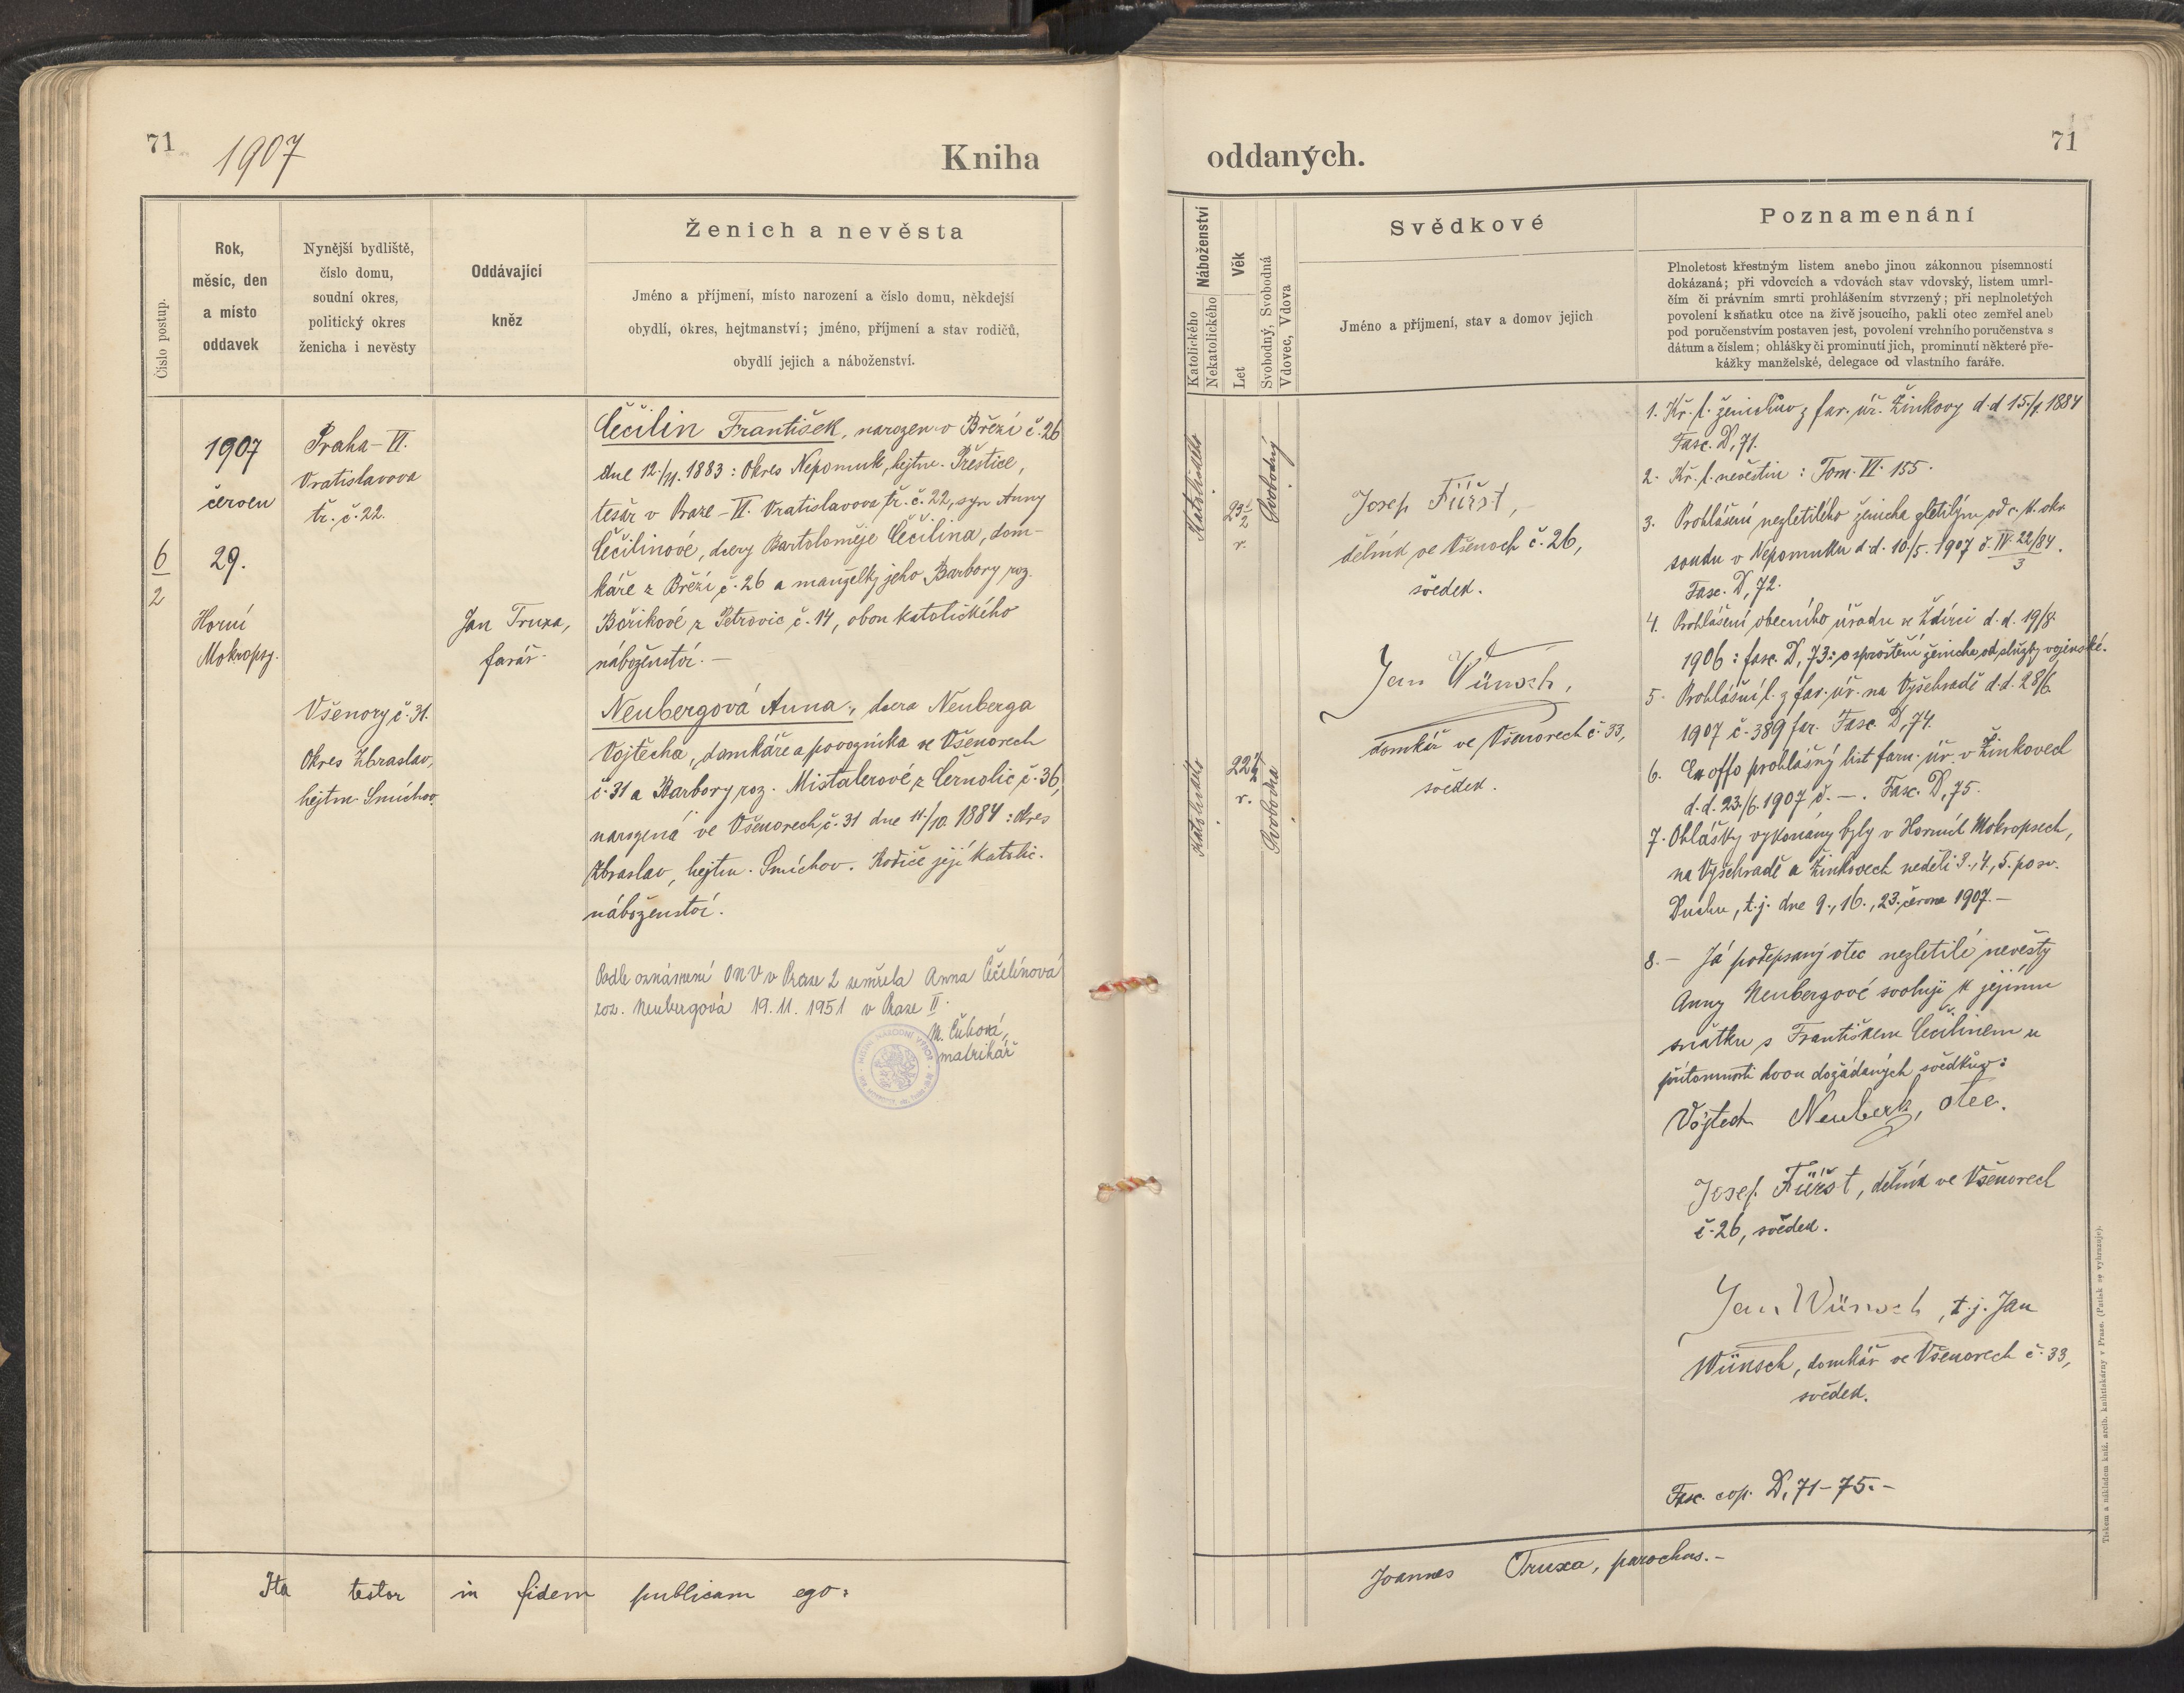 71
1907
Kniha
Číslo postup.
Rok,
měsíc, den
a místo
oddavek
Nynější bydliště,
číslo domu,
soudní okres,
politický okres
ženicha i nevěsty
Oddávající
kněz
Ženich a nevěsta
Jméno a příjmení, místo narození a číslo domu, někdejší
obydlí, okres, hejtmanství; jméno, příjmení a stav rodičů,
obydlí jejich a náboženství.
6
2
1907
červen
29.
Horní
Mokropsy.
Praha-VI.
Vratislavova
tř. č. 22.
Všenory č. 31.
Okres Zbraslav,
hejtm. Smíchov
Jan Truxa,
farář
Čečilin František, narozen v Březí č. 26
dne 12./11. 1883 : Okres Nepomuk, hejtm. Přeštice,
tesář v Praze-VI. Vratislavova tř. č. 22, syn Anny
Čečilinové, dcery Bartoloměje Čečilina, dom-
káře z Březí č. 26 a manželky jeho Barbory roz.
Bořikové z Petrovic č. 14, obou katolického
náboženství. —
Neubergová Anna, dcera Neuberga
Vojtěcha, domkáře a povozníka ve Všenorech
č. 31 a Barbory roz. Mistalerové z Černolic č. 36,
narozená ve Všenorech č. 31 dne 11./10. 1884 : Okres
Zbraslav, hejtm. Smíchov. Rodiče její katolic.
náboženství.
Podle oznámení ONV v Praze 2 zemřela Anna Čečilínová
roz. Neubergová 19.11.1951 v Praze II.
matrikář
oddaných.
71
Náboženství
Katolického
Nekatolického
Věk
Let
Svobodný, Svobodná
Vdovec, Vdova
Svědkové
Jméno a příjmení, stav a domov jejich
Poznamenání
Plnoletost křestným listem anebo jinou zákonnou písemností
dokázaná; při vdovcích a vdovách stav vdovský, listem umrl-
čím či právním smrti prohlášením stvrzený; při neplnoletých
povolení k sňatku otce na živě jsoucího, pakli otec zemřel aneb
pod poručenstvím postaven jest, povolení vrchního poručenstva s
dátum a číslem; ohlášky či prominutí jich, prominutí některé pře-
kážky manželské, delegace od vlastního faráře.
Katolického
23 1/2
r.
Svobodný
Katolického
22
r.
Svobodna
Josef Füršt,
dělník ve Všenoch č. 26,
svědek.
Jan Wünsch,
domkář ve Všenorech č. 33,
svědek.
1. Kř. l. ženichův z far. úř. Žinkovy d. d 15./7. 1884
Fasc. D, 71.
2. Kř. l. nevěstin : Tom. VI. 155.
3. Prohlášení nezletilého ženicha zletilým od c. k. okr.
soudu v Nepomuku d. d. 10./5. 1907 č. IV. 22/84
3
Fasc. D, 72.
4. Prohlášení obecního úřadu ve Ždírci d. d. 19/8.
1906 : fasc. D, 73 : o sproštění ženicha od služby vojenské.
5. Prohlášní l. z far. úř. na Vyšehradě d. d. 28/6.
1907 č. 389 far. Fasc. D, 74.
6. Ex offo prohlášný list farn. úř. v Žinkovech
d. d. 23./6. 1907 č. —. Fasc. D, 75.
7. Ohlášky vykonány byly v Horních Mokropsech,
na Vyšehradě a Žinkovech neděli 3., 4., 5. po sv.
Duchu, t. j. dne 9., 16., 23. června 1907. —
8. — Já podepsaný otec nezletilé nevěsty
Anny Neubergové svoluji k jejímu
sňatku s Františkem Čečilinem u
přítomnosti dvou dožádaných svědkův :
Vojtěch Neuberk, otec.
Josef Füršt, dělník ve Všenorech
č. 26, svědek.
Jan Wünsch, t. j. Jan
Wünsch, domkář ve Všenorech č. 33,
svědek.
Fasc. cop. D, 71-75. -
Ita testor in fidem publicam ego :
Joannes Truxa, parochus. -
Tiskem a nákladem kníž. arcib. knihtiskárny v Praze. (Patisk se vyhrazuje).